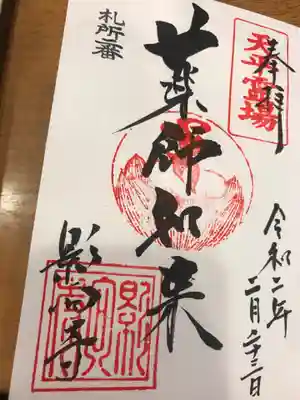 奉拝
天平霊場
令和二年
二月二十三日
薬師如来
札所一番
影向寺